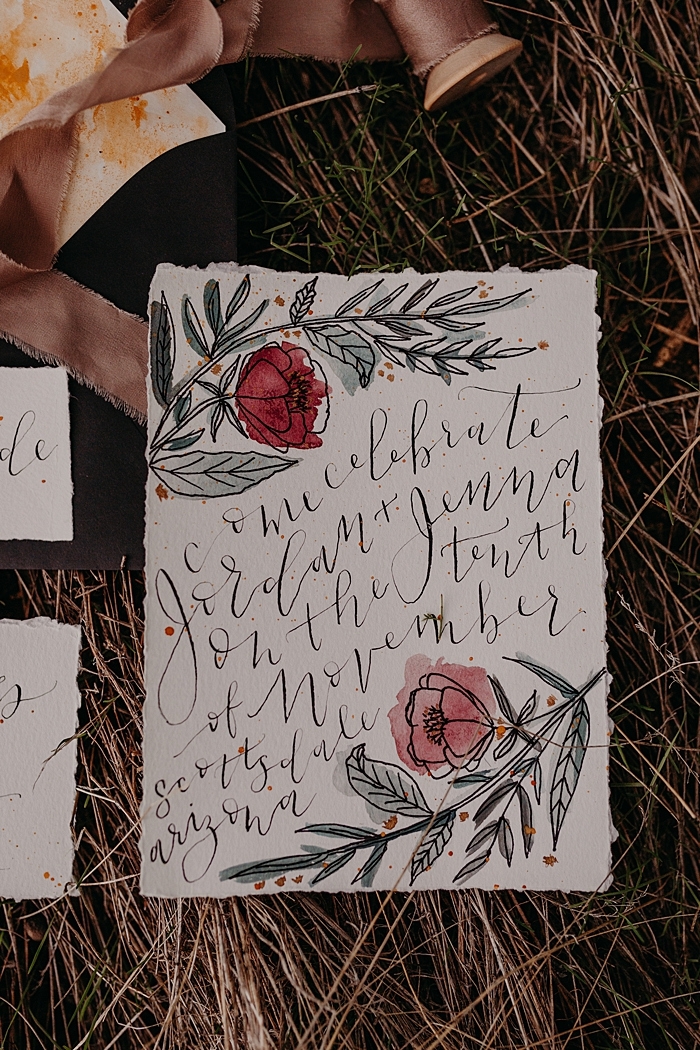 come celebrate
Jordan + Jenna
on the tenth
of November
scottsdale
arizona
de